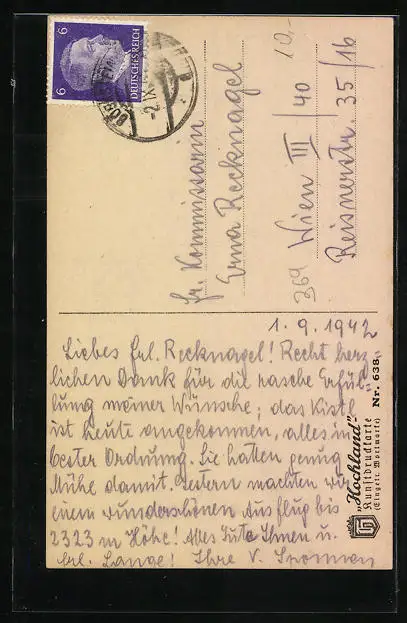 6 6
DEUTSCHES REICH
Fr. Kommissarin
Erna Recknagel
Wien III/40
Reisnerstr. 35/16
10,-
369
1. 9. 1942
Liebes Frl. Recknagel! Recht herz
lichen Dank für die rasche Erfül-
lung meiner Wünsche; das Kistl
ist heute angekommen, alles in
bester Ordnung. Sie hatten genug
Mühe damit. Gestern machten wir
einen wunderschönen Ausflug bis
2323 m Höhe! Alles Gute Ihnen u.
Frl. Lange! Ihre V.
„Hochland“-
Kunstdruckkarte
(Eingetr. Wortmarke)
Nr. 638